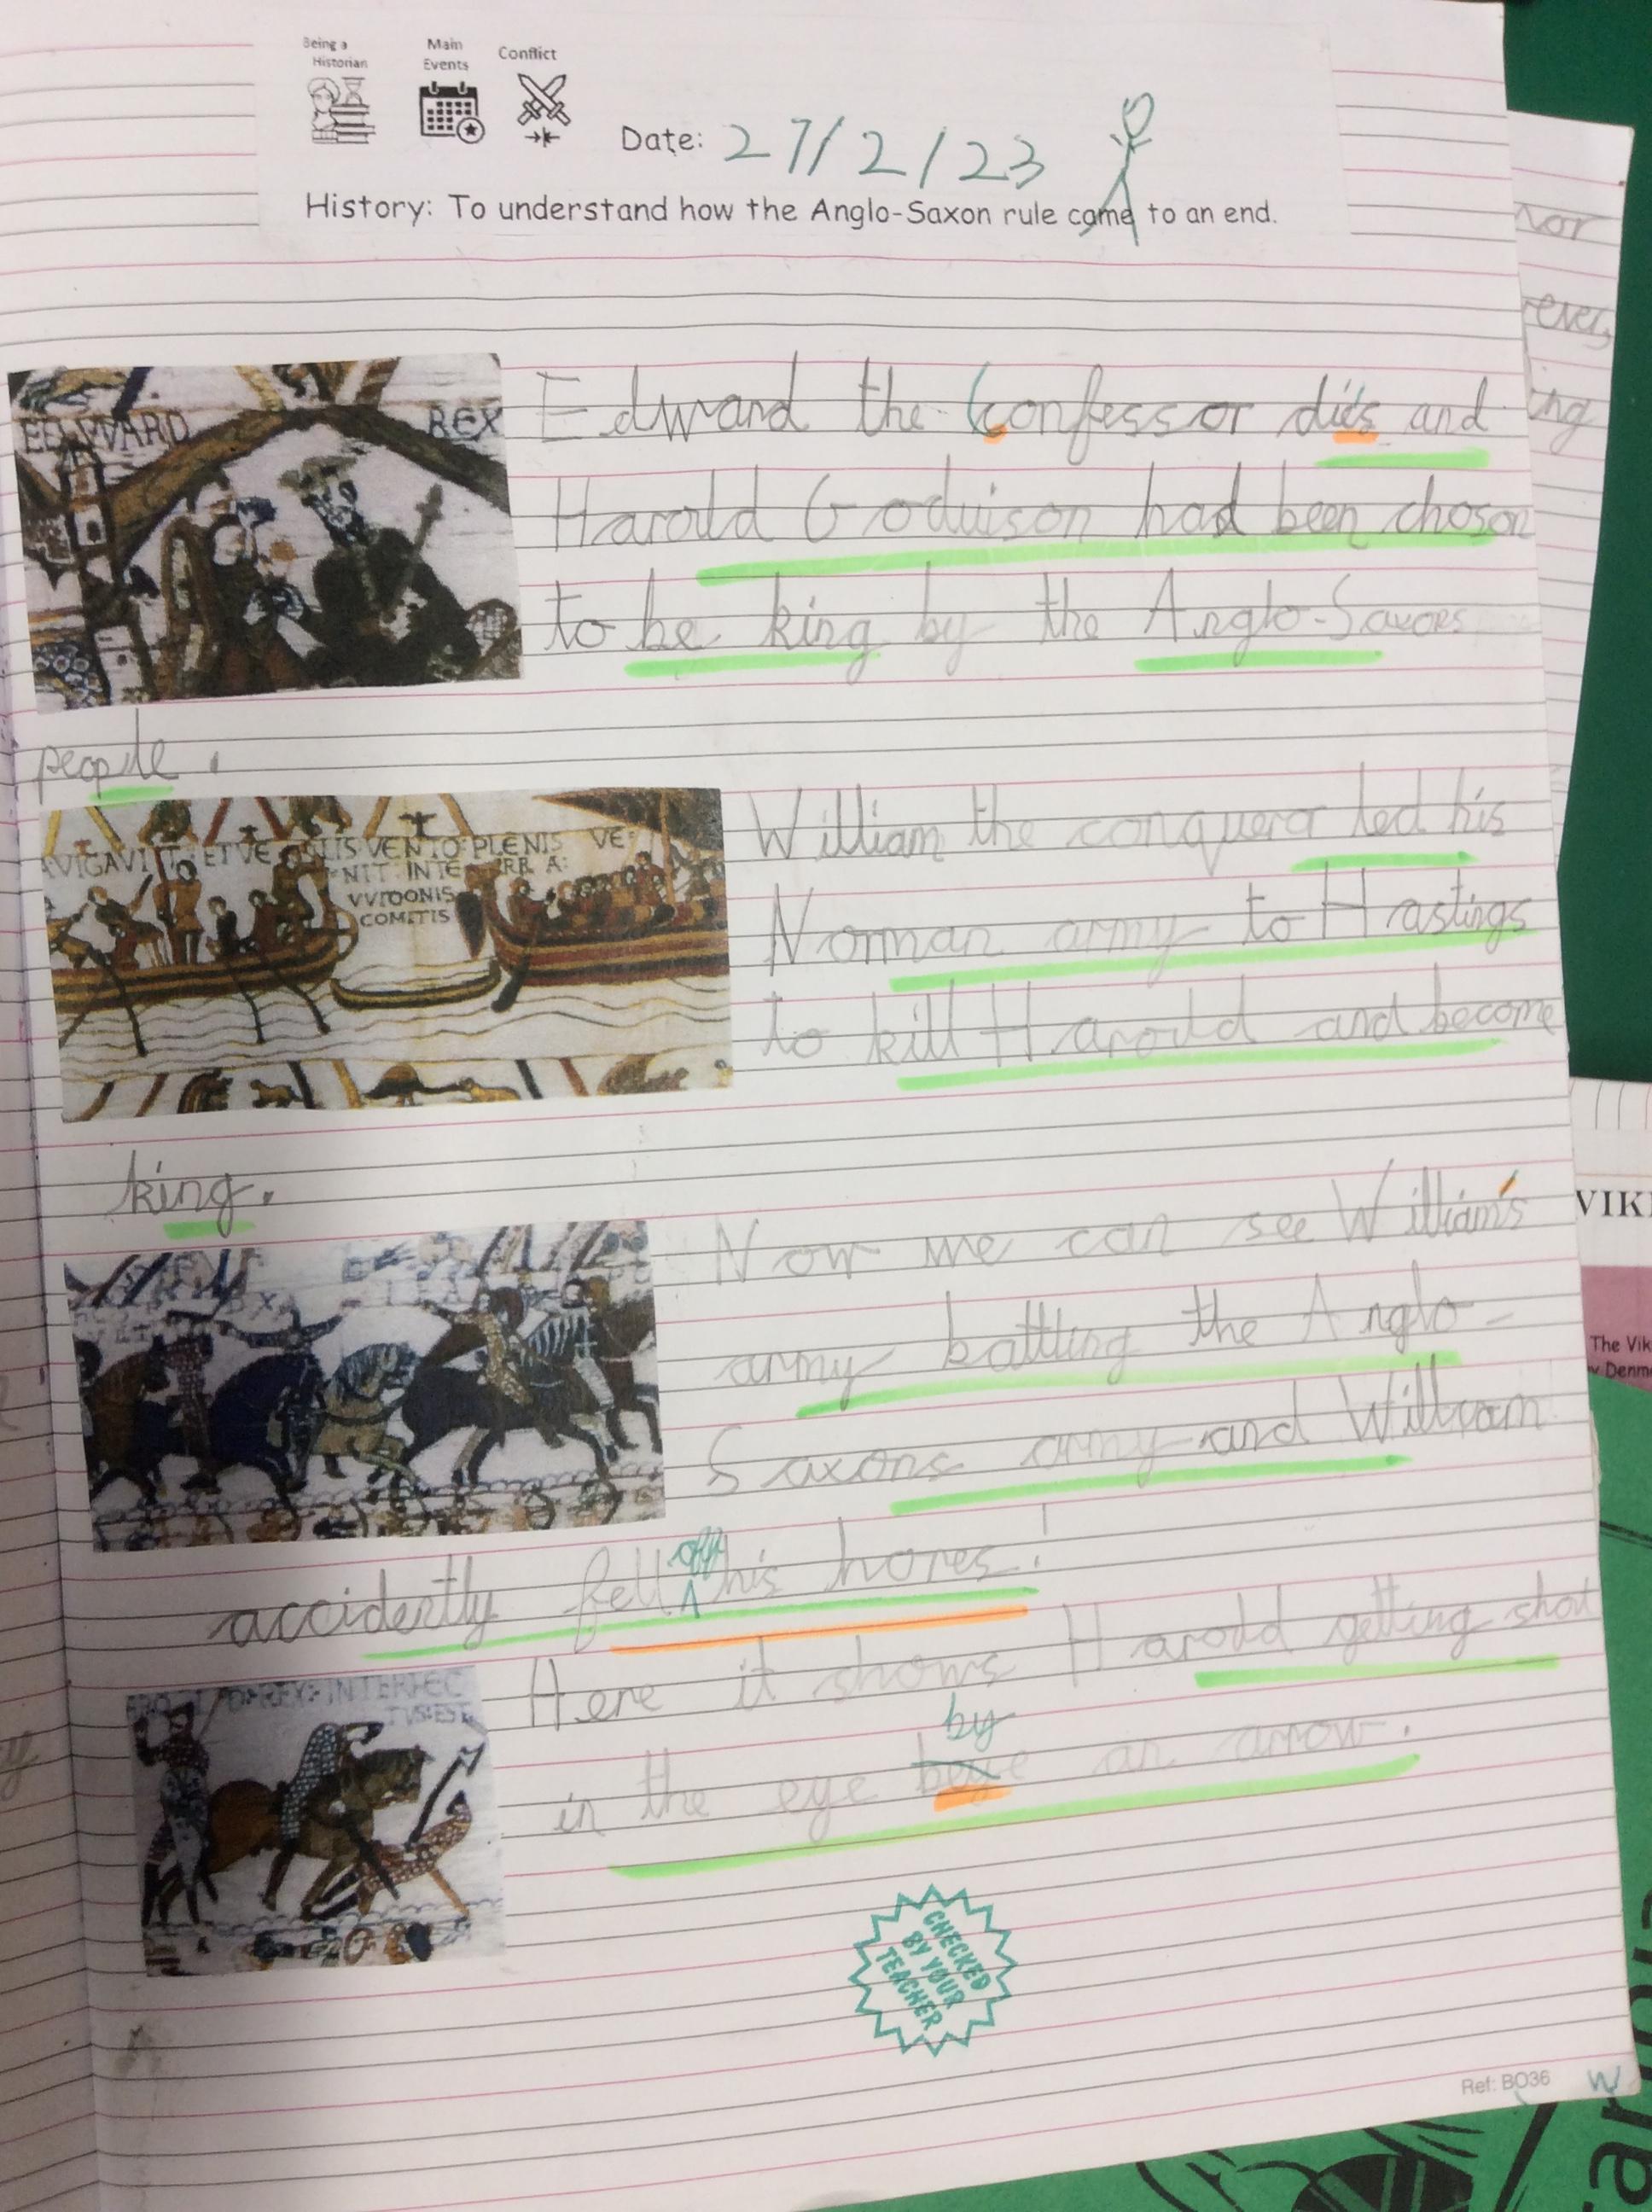 Being a
Historian
Main
Events
Conflict
Date: 27/2/23
History: To understand how the Anglo-Saxon rule came to an end.
EDVVARD REX
Edward the Confessor dies and
Harold Goduison had been choson
to be king by the Anglo-Saxons
people.
AVIGAVIT ET VE VENTO: PLENIS VE:
NIT: INTE RRA:
VVIDONIS
COMITIS
William the conqueror led his
Norman army to Hastings
to kill Harold and become
king.
Now we can see William's
army battling the Anglo-
Saxons army and William
accidently fell off his hores!
Here it shows Harold getting shot
D:REX:INTERFEC
TVS:EST
by
in the eye an arrow.
CHECKED
BY YOUR
TEACHER
Ref: BO36
W
VIKI
The Vik
Denm